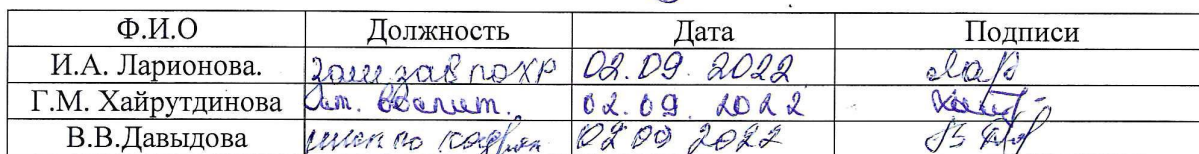 Ф.И.О Должность Дата Подписи
И.А. Ларионова. зам зав по ХР 02.09. 2022 Лар
Г.М. Хайрутдинова ст. воспит. 02.09. 2022
В.В.Давыдова по кадрам 02 09 2022